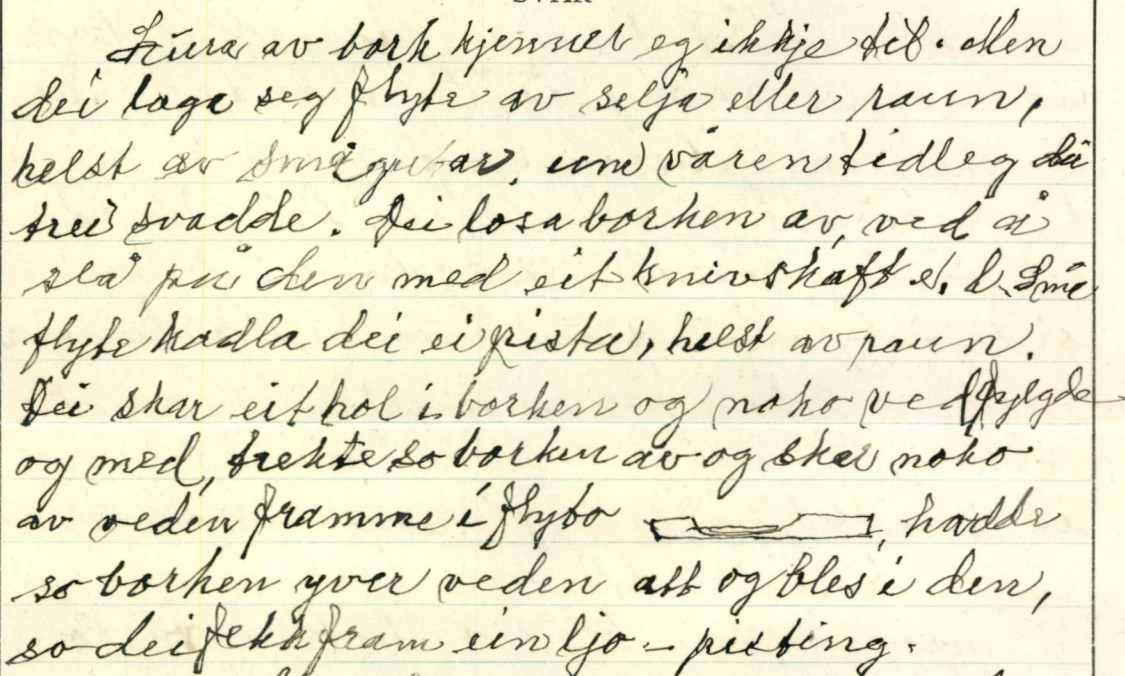 Lura av bork kjenner eg ikkje til. Men
dei laga seg fløyte av selja eller raun,
helst av smågutar, um våren tidleg då
trei svadde. Dei losa borken av, ved å
slå på den med eit knivskaft e. l. Små
fløyte kadla dei ei pista, helst av raun.
Dei skar eit hol i borken og noko ved fylgde
og med, trekte so borken av og skar noko
av veden framme i fløyto , hadde
so borken yver veden att og bles i den,
so dei fekk fram ein ljo - pisting.